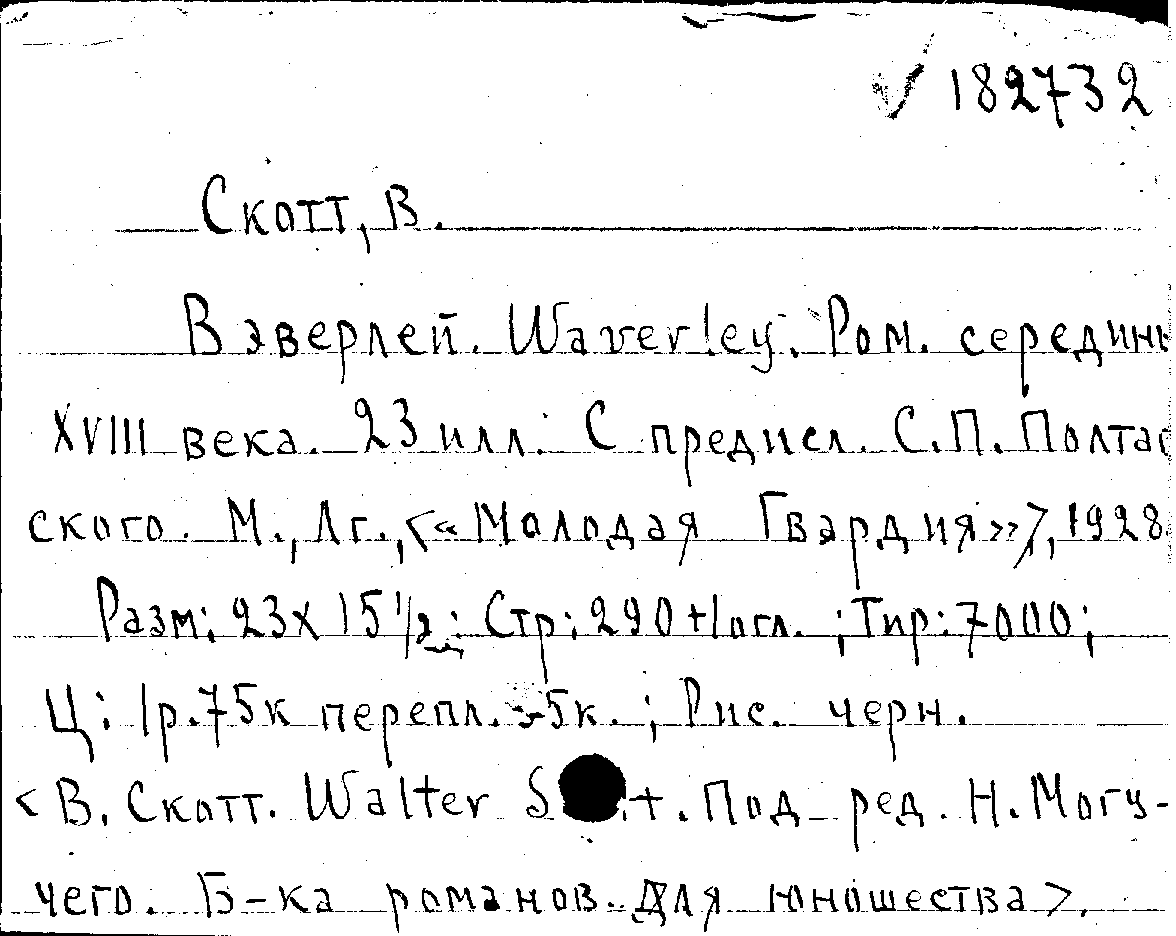 √ 182732
Скотт, В.
Вэверлей. Waverley. Ром. середины
XVIII века. 23 илл. С предисл. С.П. Полтав
ского. М., Лг., <«Молодая Гвардия»>, 1928.
Разм: 23x15 1/2; Стр: 290+1 огл. ; Тир: 7000;
Ц: 1р.75к перепл. 35к. ; Рис. черн.
<В. Скотт. Walter S t. Под ред. Н. Могу-
чего. Б-ка романов для юношества>.